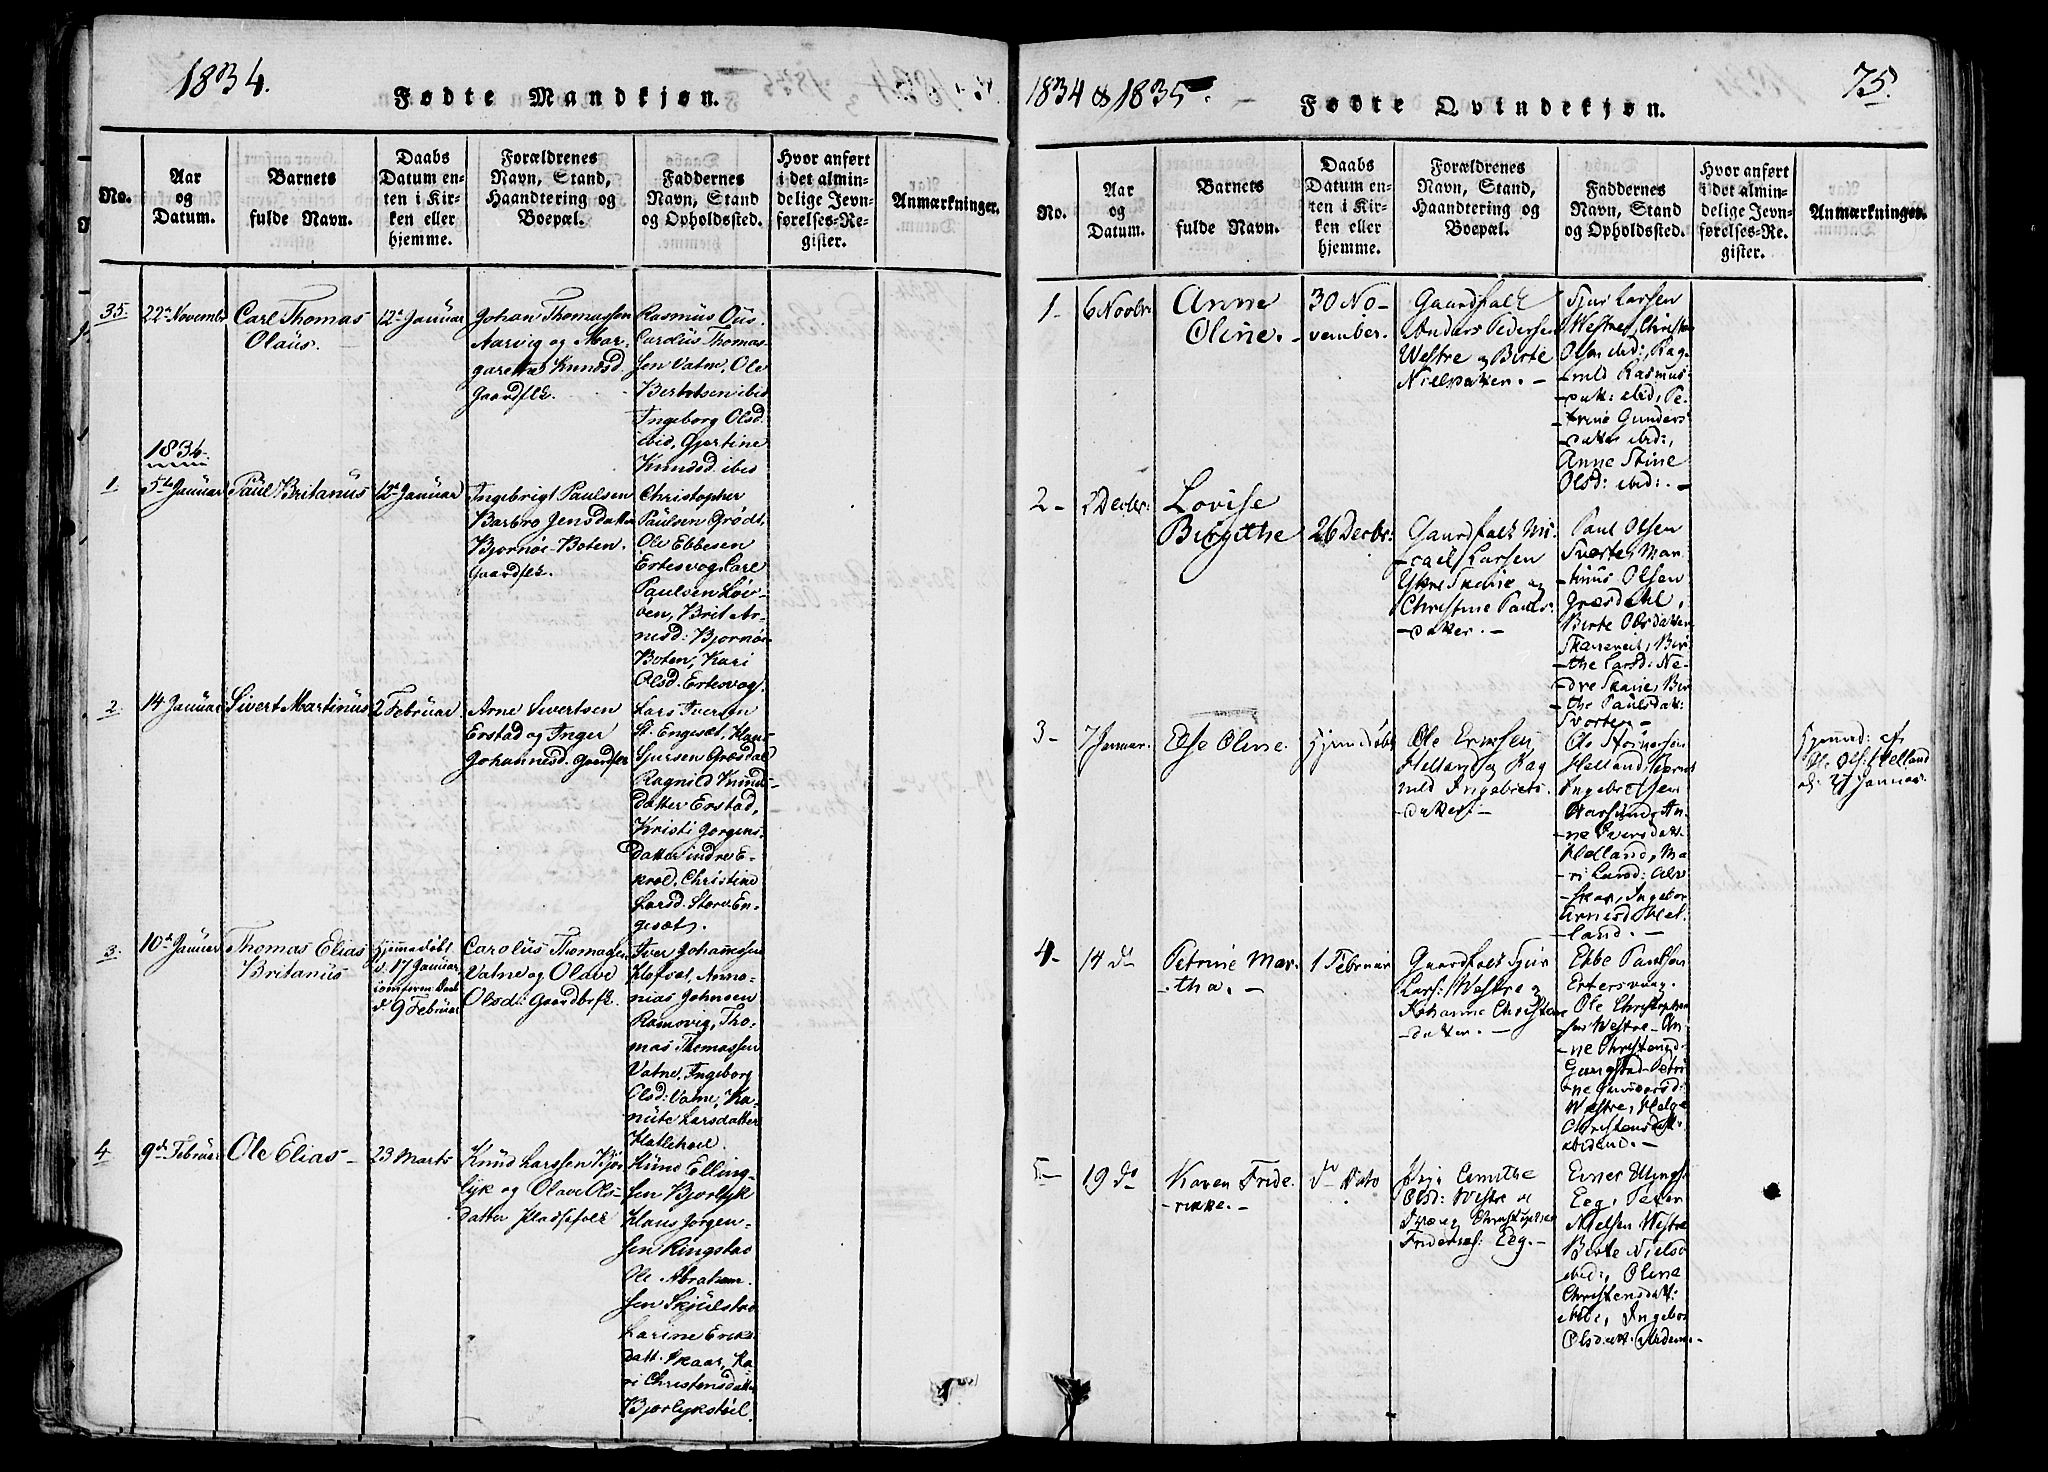 1834.
Fødte Mandkjøn.
No.
Aar
og
Datum.
Barnets
fulde Navn.
Daabs
Datum en-
ten i Kir-
ken eller
hjemme.
Forældrenes
Navn, Stand,
Haandtering og
Boepæl.
Faddernes
Navn, Stand
og Opholdssted.
Hvor anført
i det almin-
delige Jevn-
førelses-Re-
gister.
Anmærkninger.
35.
22de Novembr
Carl Thomas
Olaüs.
12te Januar
Johan Thomassen
Aarvig og Mar-
garethe Knudsd.
Gaardflk.
Rasmus
Carolüs Thomas-
sen Vatne, Ole
Bertelsen ibid
Ingeborg Olsd.
ibid, Gjertine
Knudsd. ibid
1834.
1.
5te Januar
Paul Britanus
12te Januar
Ingebrigt Paulsen
Barbro Jensdatter
Bjornøe-Boten.
Gaardflk.
Christopher
Paulsen Grødt,
Ole Ebbesen
Ertesvog, Carl
Paulsen Løv-
øen, Brit Ar-
nesd: Bjornøe
Boten, Kari
Olsd. Ertesvog.
2.
14 Januar
Sivert Martinüs
2 Februar
Arne Sivertsen
Erstad og Inger
Johannesd. Gaardflk
Lars Iversen
St. Engeset,
Sjursen Grøsdal
Ragnild Knuds-
datter Erstad,
Kristi Jorgens-
datter indre E-
krol, Christine
Larsd. Store En-
geset.
3.
10de Januar
Thomas Elias
Britanus
Hjemmedøbt
d. 17 Januar
d. 9 Februar
Carolüs Thomassen
Vatne og Olave
Olsd: Gaardbrflk.
Iver Johannesen
Lofvet, Anna-
nias Johnsen
Ramsvig, Tho-
mas Thomassen
Vatne, Ingeborg
Olsd: Vatne, Ka-
nüte Larsdatter
Hatlehoel.
4.
9de Februar
Ole Elias
23 Marts
Knud Larssen Bjør-
lyk og Olave Ols-
datter Pladsefolk
Knud Elling-
sen Bjorlyk
Klaus Jorgen-
sen Ringstad
Ole Abraham-
sen Skjülstad
Larine Eriks-
datt. Skaar, Ka-
ri Christensdatter
Bjørlykstøil.
1834 & 1835.
75.
Fødte Qvindekjøn.
No.
Aar
og
Datum.
Barnets
fulde Navn.
Daabs
Datum en-
ten i Kir-
ken eller
hjemme.
Forældrenes
Navn, Stand,
Haandtering og
Boepæl.
Faddernes
Navn, Stand
og Opholdssted.
Hvor anført
i det almin-
delige Jevn-
førelses-Re-
gister.
Anmærkninger.
1
6 Novbr
Anne
Oline.
30 No-
vember.
Gaardfolk
Anders Pedersen
Westre og Birte
Nielsdatter.
Sjur Larsen
Westre, Christen
Olsen ibid:, Rag-
nild Rasmus-
dat: ibid, Pe-
trine Gunders-
datter ibid:,
Anne Stine
Olsd: ibid:.
2
2 Decbr:
Lovise
Birgithe
26 Decbr:
Gaardfolk Mi-
cael Larsen
Ytre Skarie og
Christine Pauls-
datter.
Paul Olsen
Svorte, Mar-
tinüs Olsen
Græsdahl,
Birte Olsdatter
Skareneset, Bir-
the Larsd: Ne-
dre Skarie, Bir-
the Paulsdat:
Svorten
3
7 Januar.
Else Oline.
Hjemmedøbt
Ole Eriksen
Helland og Rag-
nild Ingebrets-
datter
Ole Steinersen
Helland,
Ingebretsen
Aarsund, An-
ne Iversdatt:
Helland, Ma-
ri Larsd:
Ingebor
Arnesd Hel-
land.
Hjemmed: af
Ole Ols: Helland
4
14 do
Petrine Mar-
tha.
1 Februar
Gaardfolk Sjur
Lars: Westre og
Johanne Christens-
datter.
Ebbe Paulsen
Ertesvaag.
Ole Christophen-
sen Westre, An-
ne Christensd:
Gangstad, Petri-
ne Gundersd:
Westre, Helge
Christensdatt
ibidend.
5
19 do
Karen Fride-
rikke.
do Dato
Pige
Olsd: Westre og
Fridriks: Eeg.
Einer Ellings:
Eeg, Peder
Nielsen Westre
Birte Nielsd
ibid:, Oline
Christensdatt:
ibid:, Ingebor
Olsdatt: ibidem.